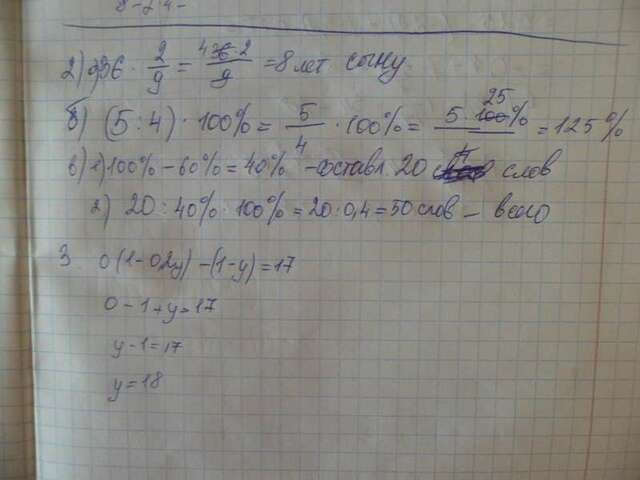 2) а) 36 · 2/9 = 36·2/9 = 8 лет сыну
б) (5:4) · 100% = 5/4 · 100% = 5·100%/4 = 125%
25
в) 1) 100% - 60% = 40% - составл. 20 слов
2) 20 : 40% · 100% = 20 : 0,4 = 50 слов - всего
3 0(1-0,2y) - (1-y) = 17
0 - 1 + y = 17
y - 1 = 17
y = 18